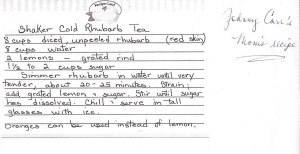 Shaker Cold Rhubarb Tea
8 cups diced, unpeeled rhubarb (red skin)
8 cups water
2 lemons - grated rind
1½ to 2 cups sugar
Simmer rhubarb in water until very
tender, about 20-25 minutes. Strain;
add grated lemon & sugar. Stir until sugar
has dissolved. Chill & serve in tall
glasses with ice.
Oranges can be used instead of lemon.
Johnny Carr's
Mom's recipe